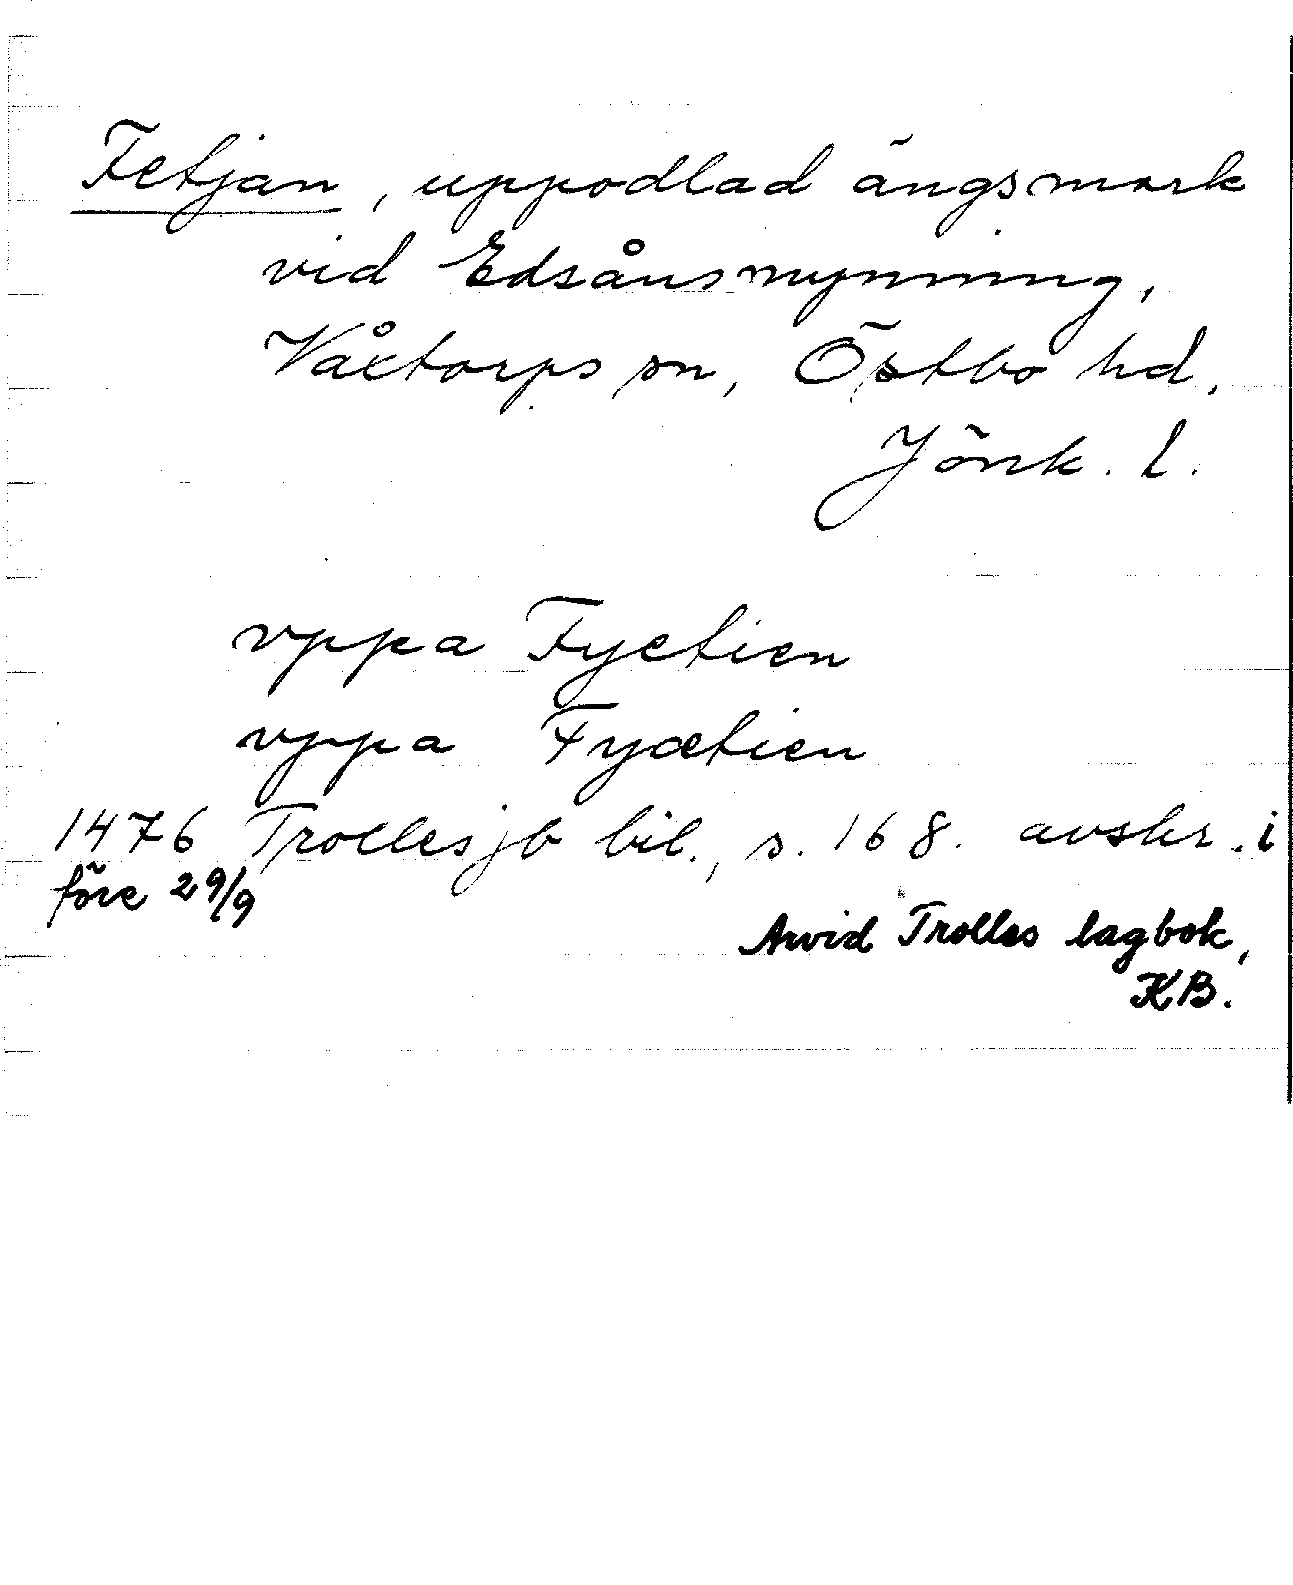 Fetjan, uppodlad ängsmark
vid Edsåns mynning,
Våctorps sn, Östbo hd,
Jönk. l.
vppa Fyetien
vppa Fyætien
1476 Trolles jb bil., s. 168. avskr. i
före 29/9
Arvid Trolles lagbok,
KB.